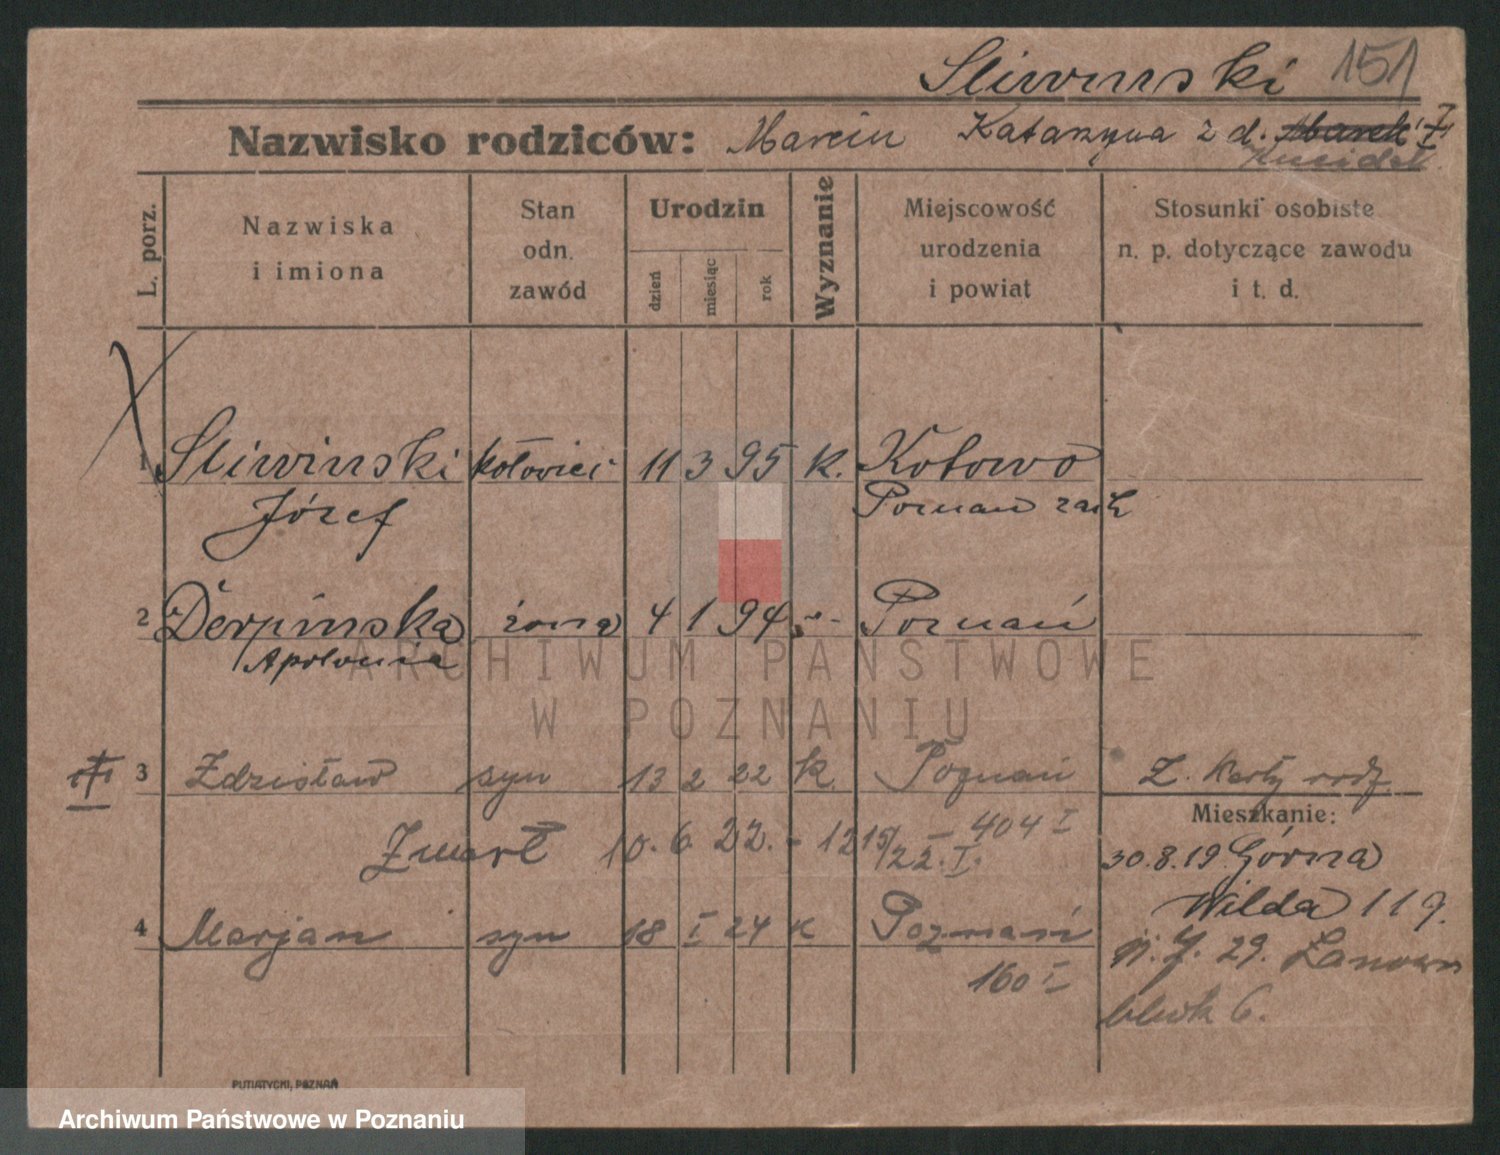 Sliwinski 151
Nazwisko rodziców: Marcin Katarzyna z d.
L. porz.
Nazwiska
i imiona
Stan
odn.
zawód
Urodzin
dzień
miesiąc
rok
Wyznanie
Miejscowość
urodzenia
i powiat
Stosunki osobiste
n. p. dotyczące zawodu
i t. d.
1 Sliwinski 11 3 95 k. Kotowo
Józef Poznań zach
2 Derpinska żona 4 1 94 -"- Poznań
Apolonia
3 Zdzisław syn 13 2 22 k Poznań Z. Karty rodz.
404 I
Mieszkanie:
Zmarł 10. 6. 22. - 1215/22. I.
30.8.19 Górna
Wilda 119.
4 Marjan syn 18 I 24 k Poznań
29. Łanowa
160 I
blok 6.
PUTIATYCKI, POZNAŃ
ARCHIWUM PAŃSTWOWE
W POZNANIU
Archiwum Państwowe w Poznaniu